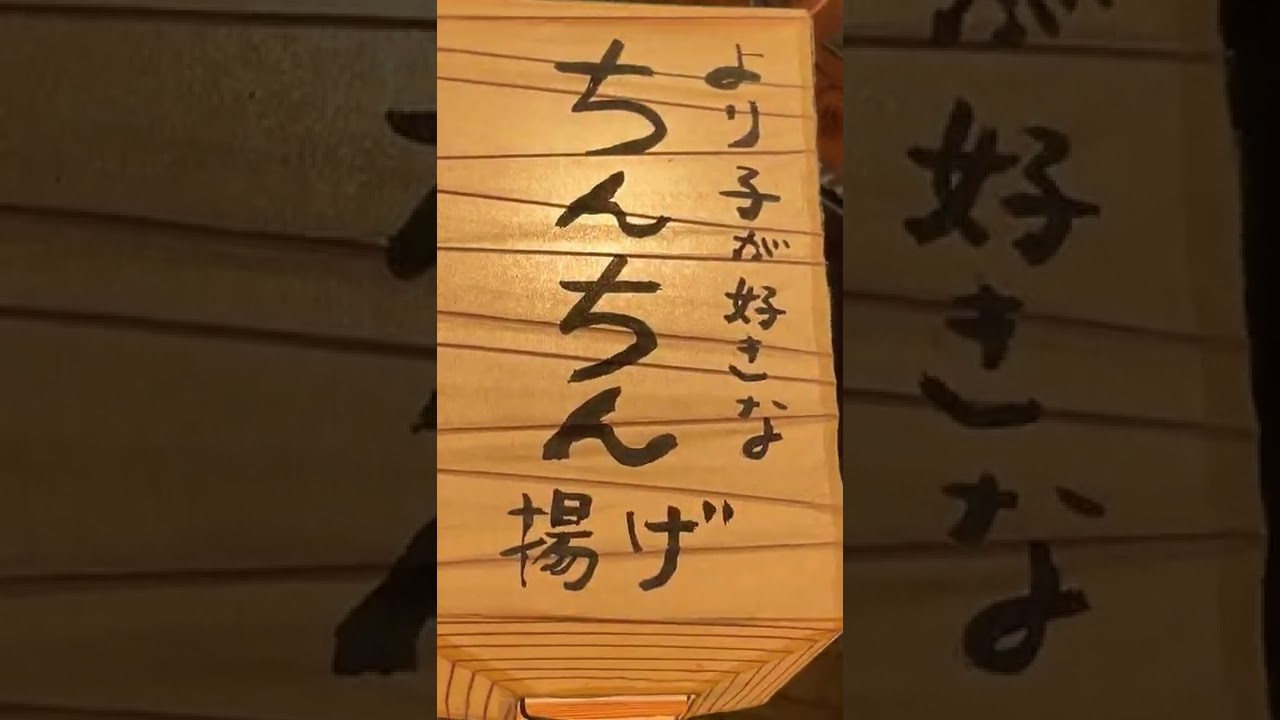 より子が好きな
ちんちん
揚げ